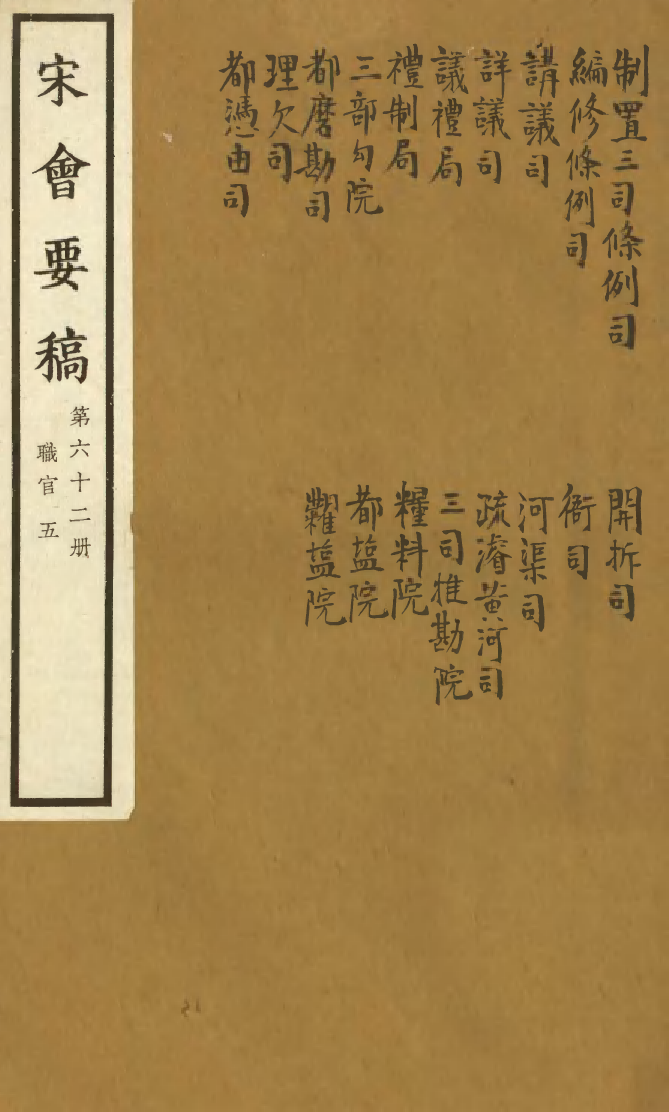 制置三司條例司
編修條例司
講議司
詳議司
議禮局
禮制局
三部勾院
都磨勘司
理欠司
都憑由司
開拆司
衙司
河渠司
疏濬黃河司
三司推勘院
糧料院
都盐院
糴盐院
宋會要稿
第六十二册
職官五